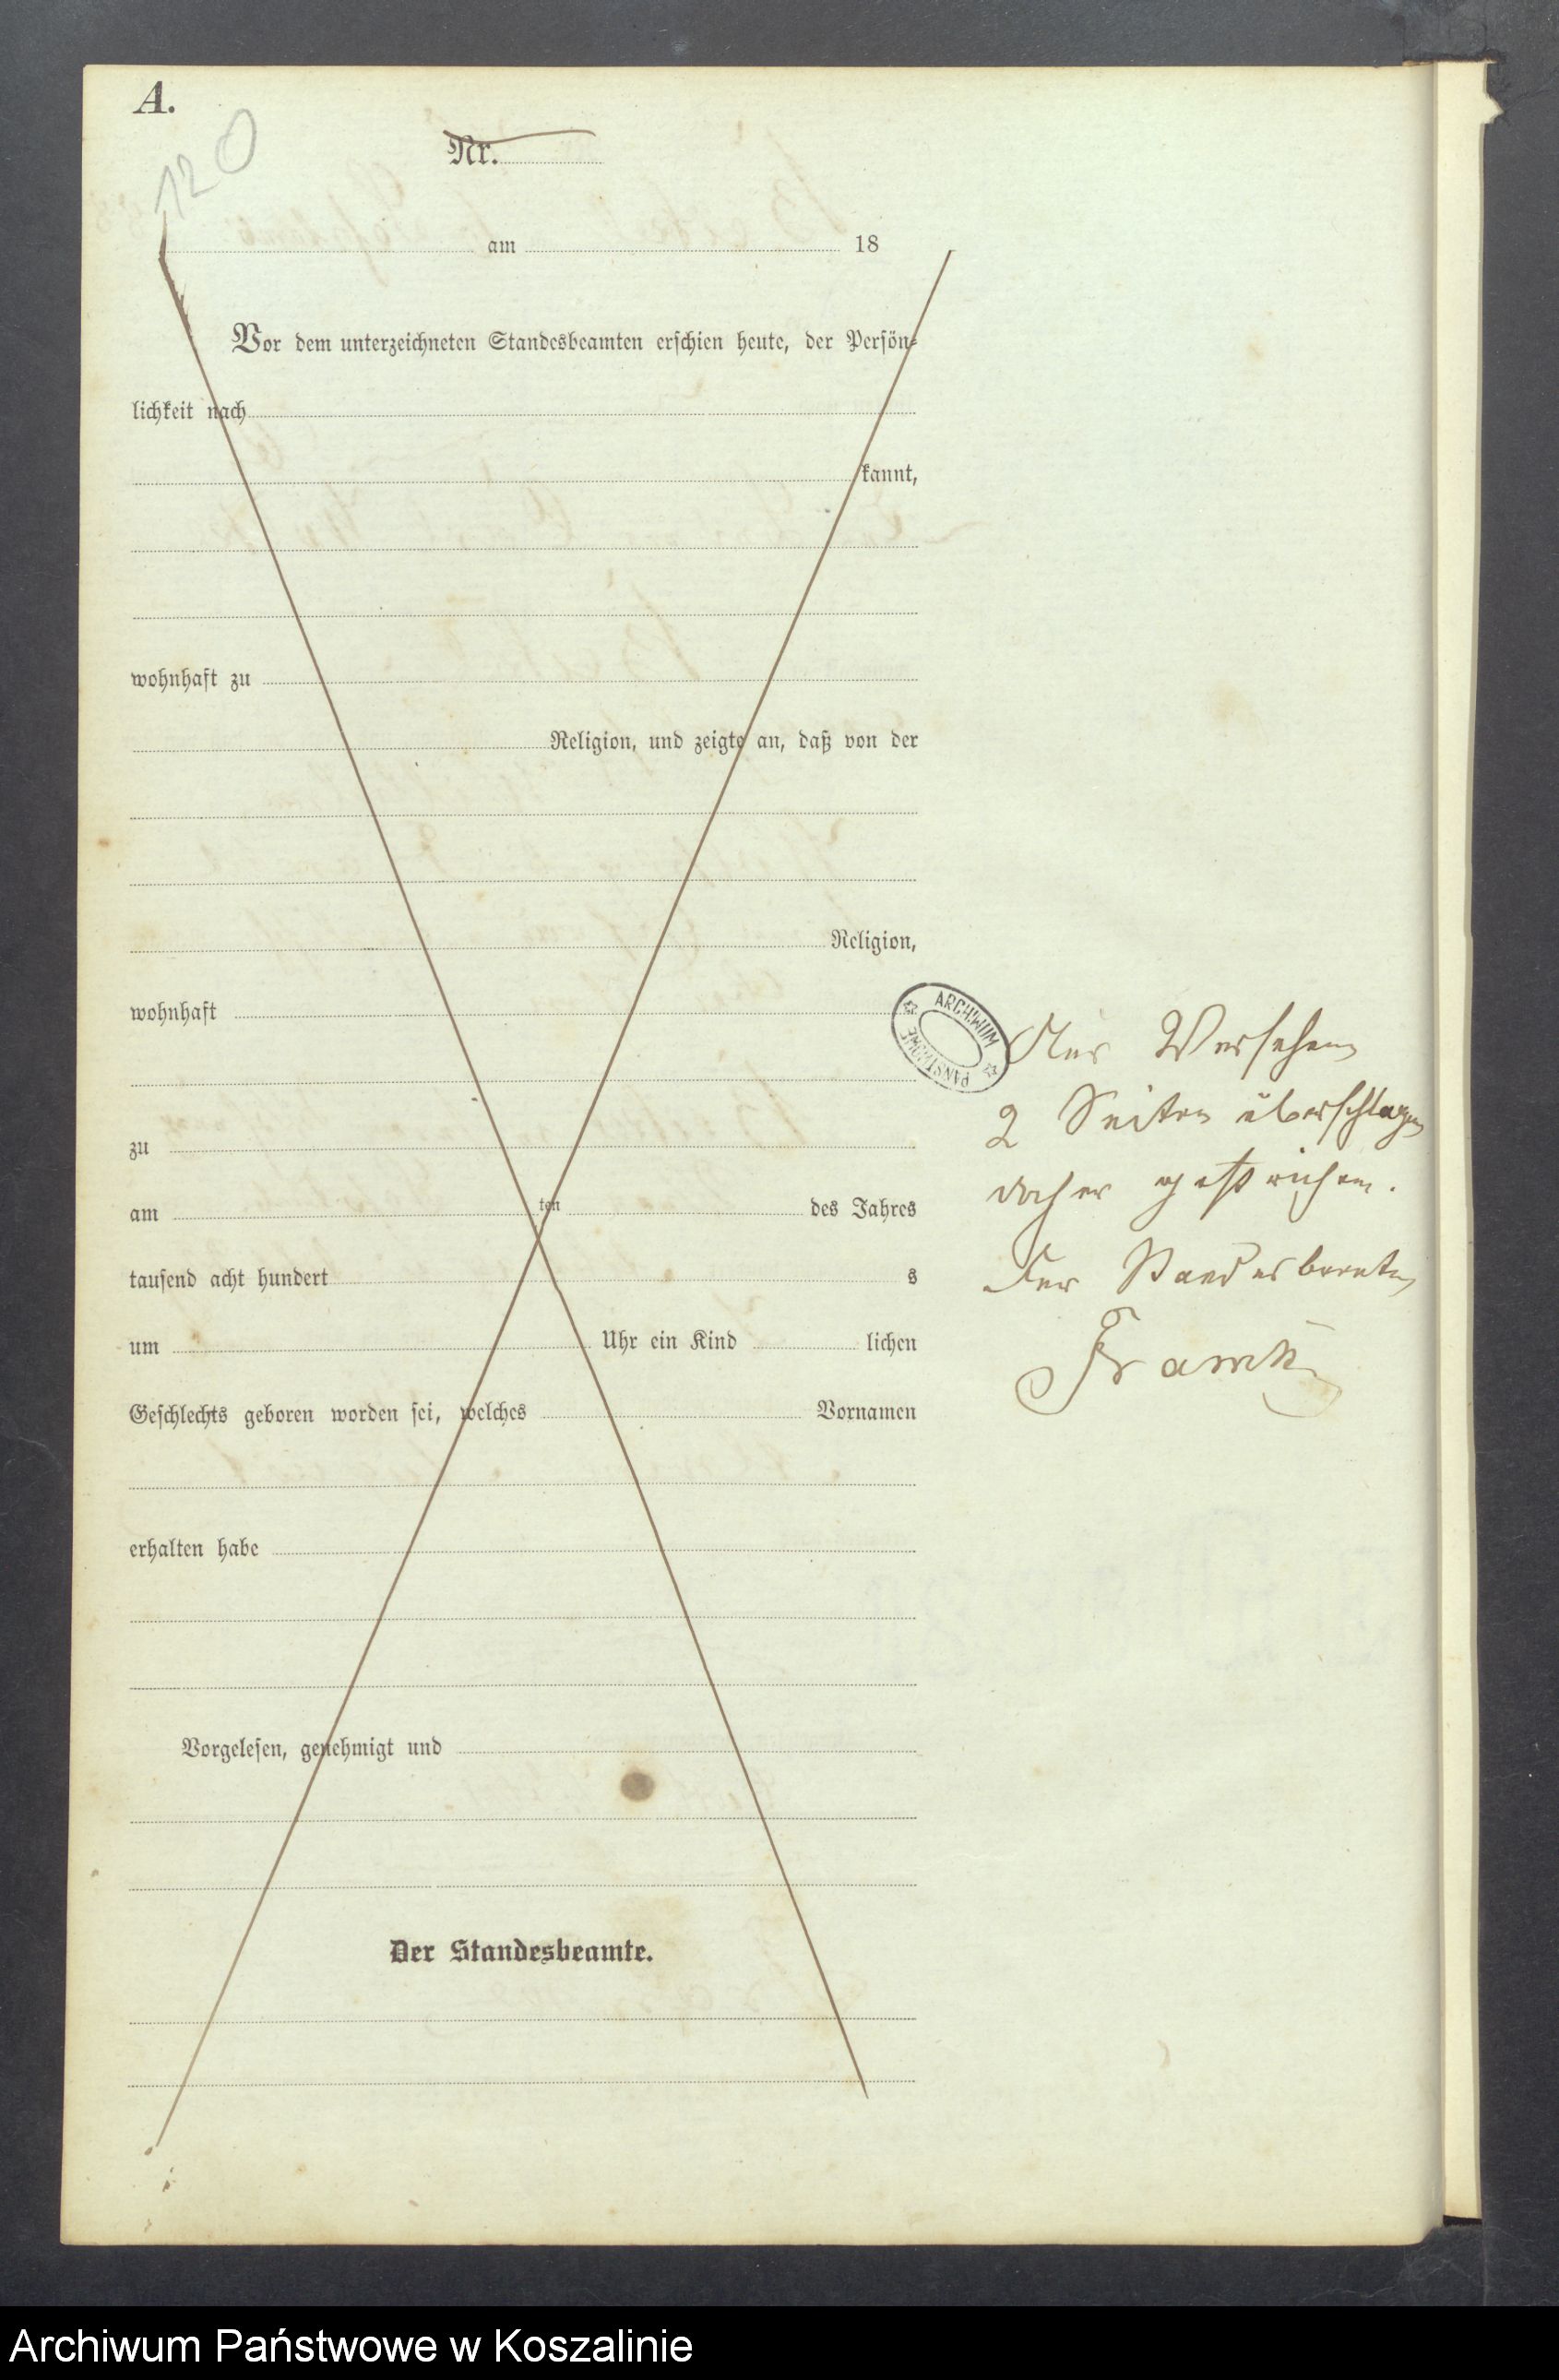 A.
120
Nr.
am 18
Vor dem unterzeichneten Standesbeamten erschien heute, der Persön-
lichkeit nach
kannt,
wohnhaft zu
Religion, und zeigte an, daß von der
Religion,
wohnhaft
ARCHIWUM
PAŃSTWOWE
Aus Versehen
2 Seiten überschlagen
daher gestrichen.
Der Standesbeamte
zu
am ten des Jahres
tausend acht hundert s
um Uhr ein Kind lichen
Geschlechts geboren worden sei, welches Vornamen
erhalten habe
Vorgelesen, genehmigt und
Der Standesbeamte.
Archiwum Państwowe w Koszalinie